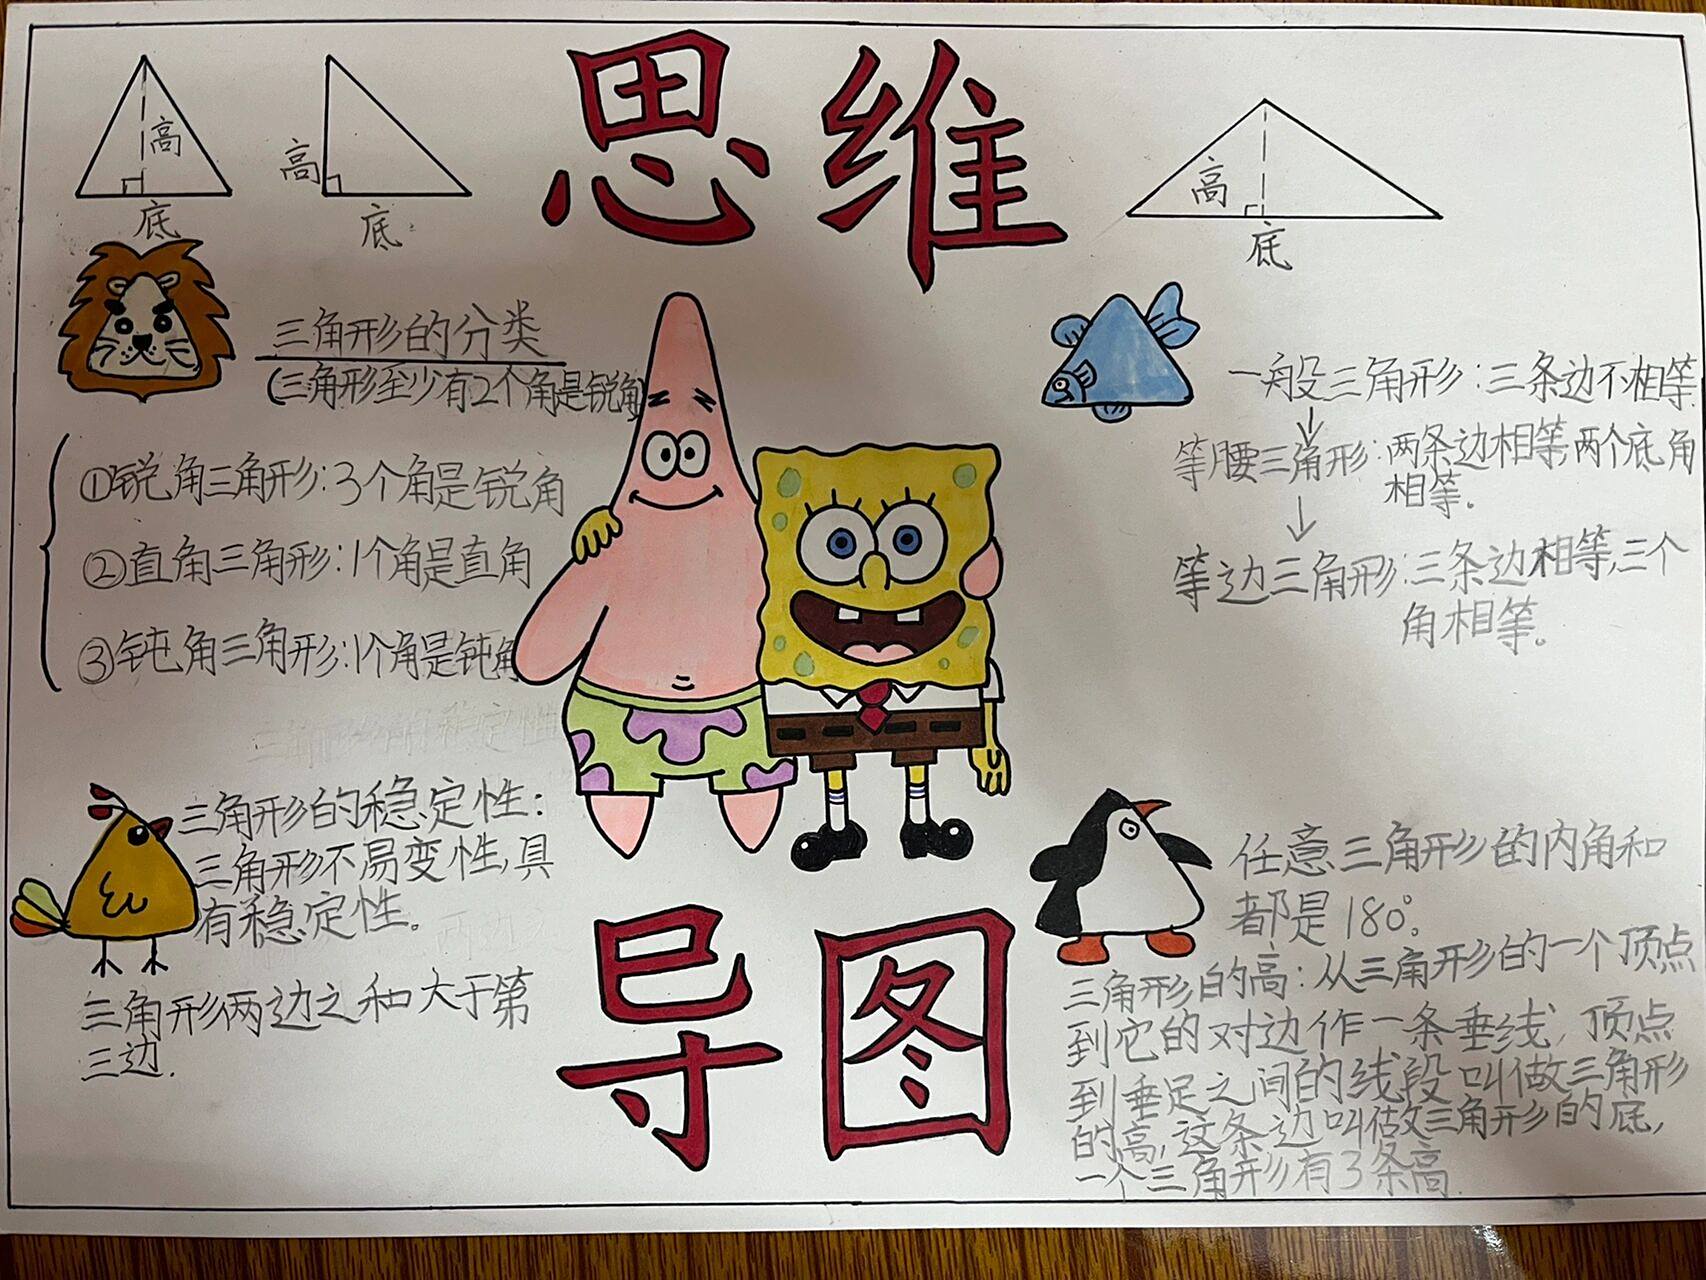 思维
高
底
高
底
高
底
三角形的分类
(三角形至少有2个角是锐角)
①锐角三角形:3个角是锐角
②直角三角形:1个角是直角
③钝角三角形:1个角是钝角
三角形的稳定性:
三角形不易变性,具
有稳定性。
三角形两边之和大于第
三边.
一般三角形:三条边不相等.
等腰三角形:两条边相等,两个底角
相等。
等边三角形:三条边相等,三个
角相等。
任意三角形的内角和
都是180°。
三角形的高:从三角形的一个顶点
到它的对边作一条垂线,顶点
到垂足之间的线段叫做三角形
的高,这条边叫做三角形的底,
一个三角形有3条高.
导图